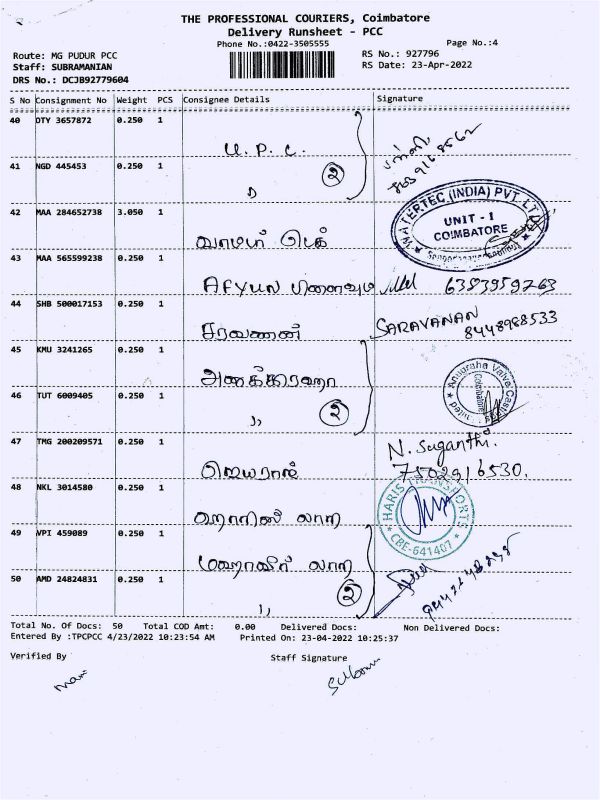 THE PROFESSIONAL COURIERS, Coimbatore
Delivery Runsheet - PCC
Phone No.:0422-3505555
Page No.:4
Route: MG PUDUR PCC
RS No.: 927796
Staff: SUBRAMANIAN
RS Date: 23-Apr-2022
DRS No.: DCJB92779604
S No Consignment No Weight PCS Consignee Details Signature
40 DTY 3657872 0.250 1
U. P. C.
41 NGD 445453 0.250 1
2
42 MAA 284652738 3.050 1
WATERTEC (INDIA) PVT. LTD.
UNIT - I
COIMBATORE
43 MAA 565599238 0.250 1
6383959263
44 SHB 500017153 0.250 1
சரவணன் SARAVANAN
8448988533
45 KMU 3241265 0.250 1
46 TUT 6009405 0.250 1
,, 2
Coimbatore
47 TMG 200209571 0.250 1
ஜெயராஜ் N. Suganthi.
7502916530.
48 NKL 3014580 0.250 1
ஹாரிஸ் லாரி
HARIS TRANSPORTS
CBE-641407
49 VPI 459089 0.250 1
மஹாவீர் லாரி
50 AMD 24824831 0.250 1
,, 2
Total No. Of Docs: 50 Total COD Amt: 0.00 Delivered Docs: Non Delivered Docs:
Entered By :TPCPCC 4/23/2022 10:23:54 AM Printed On: 23-04-2022 10:25:37
Verified By Staff Signature